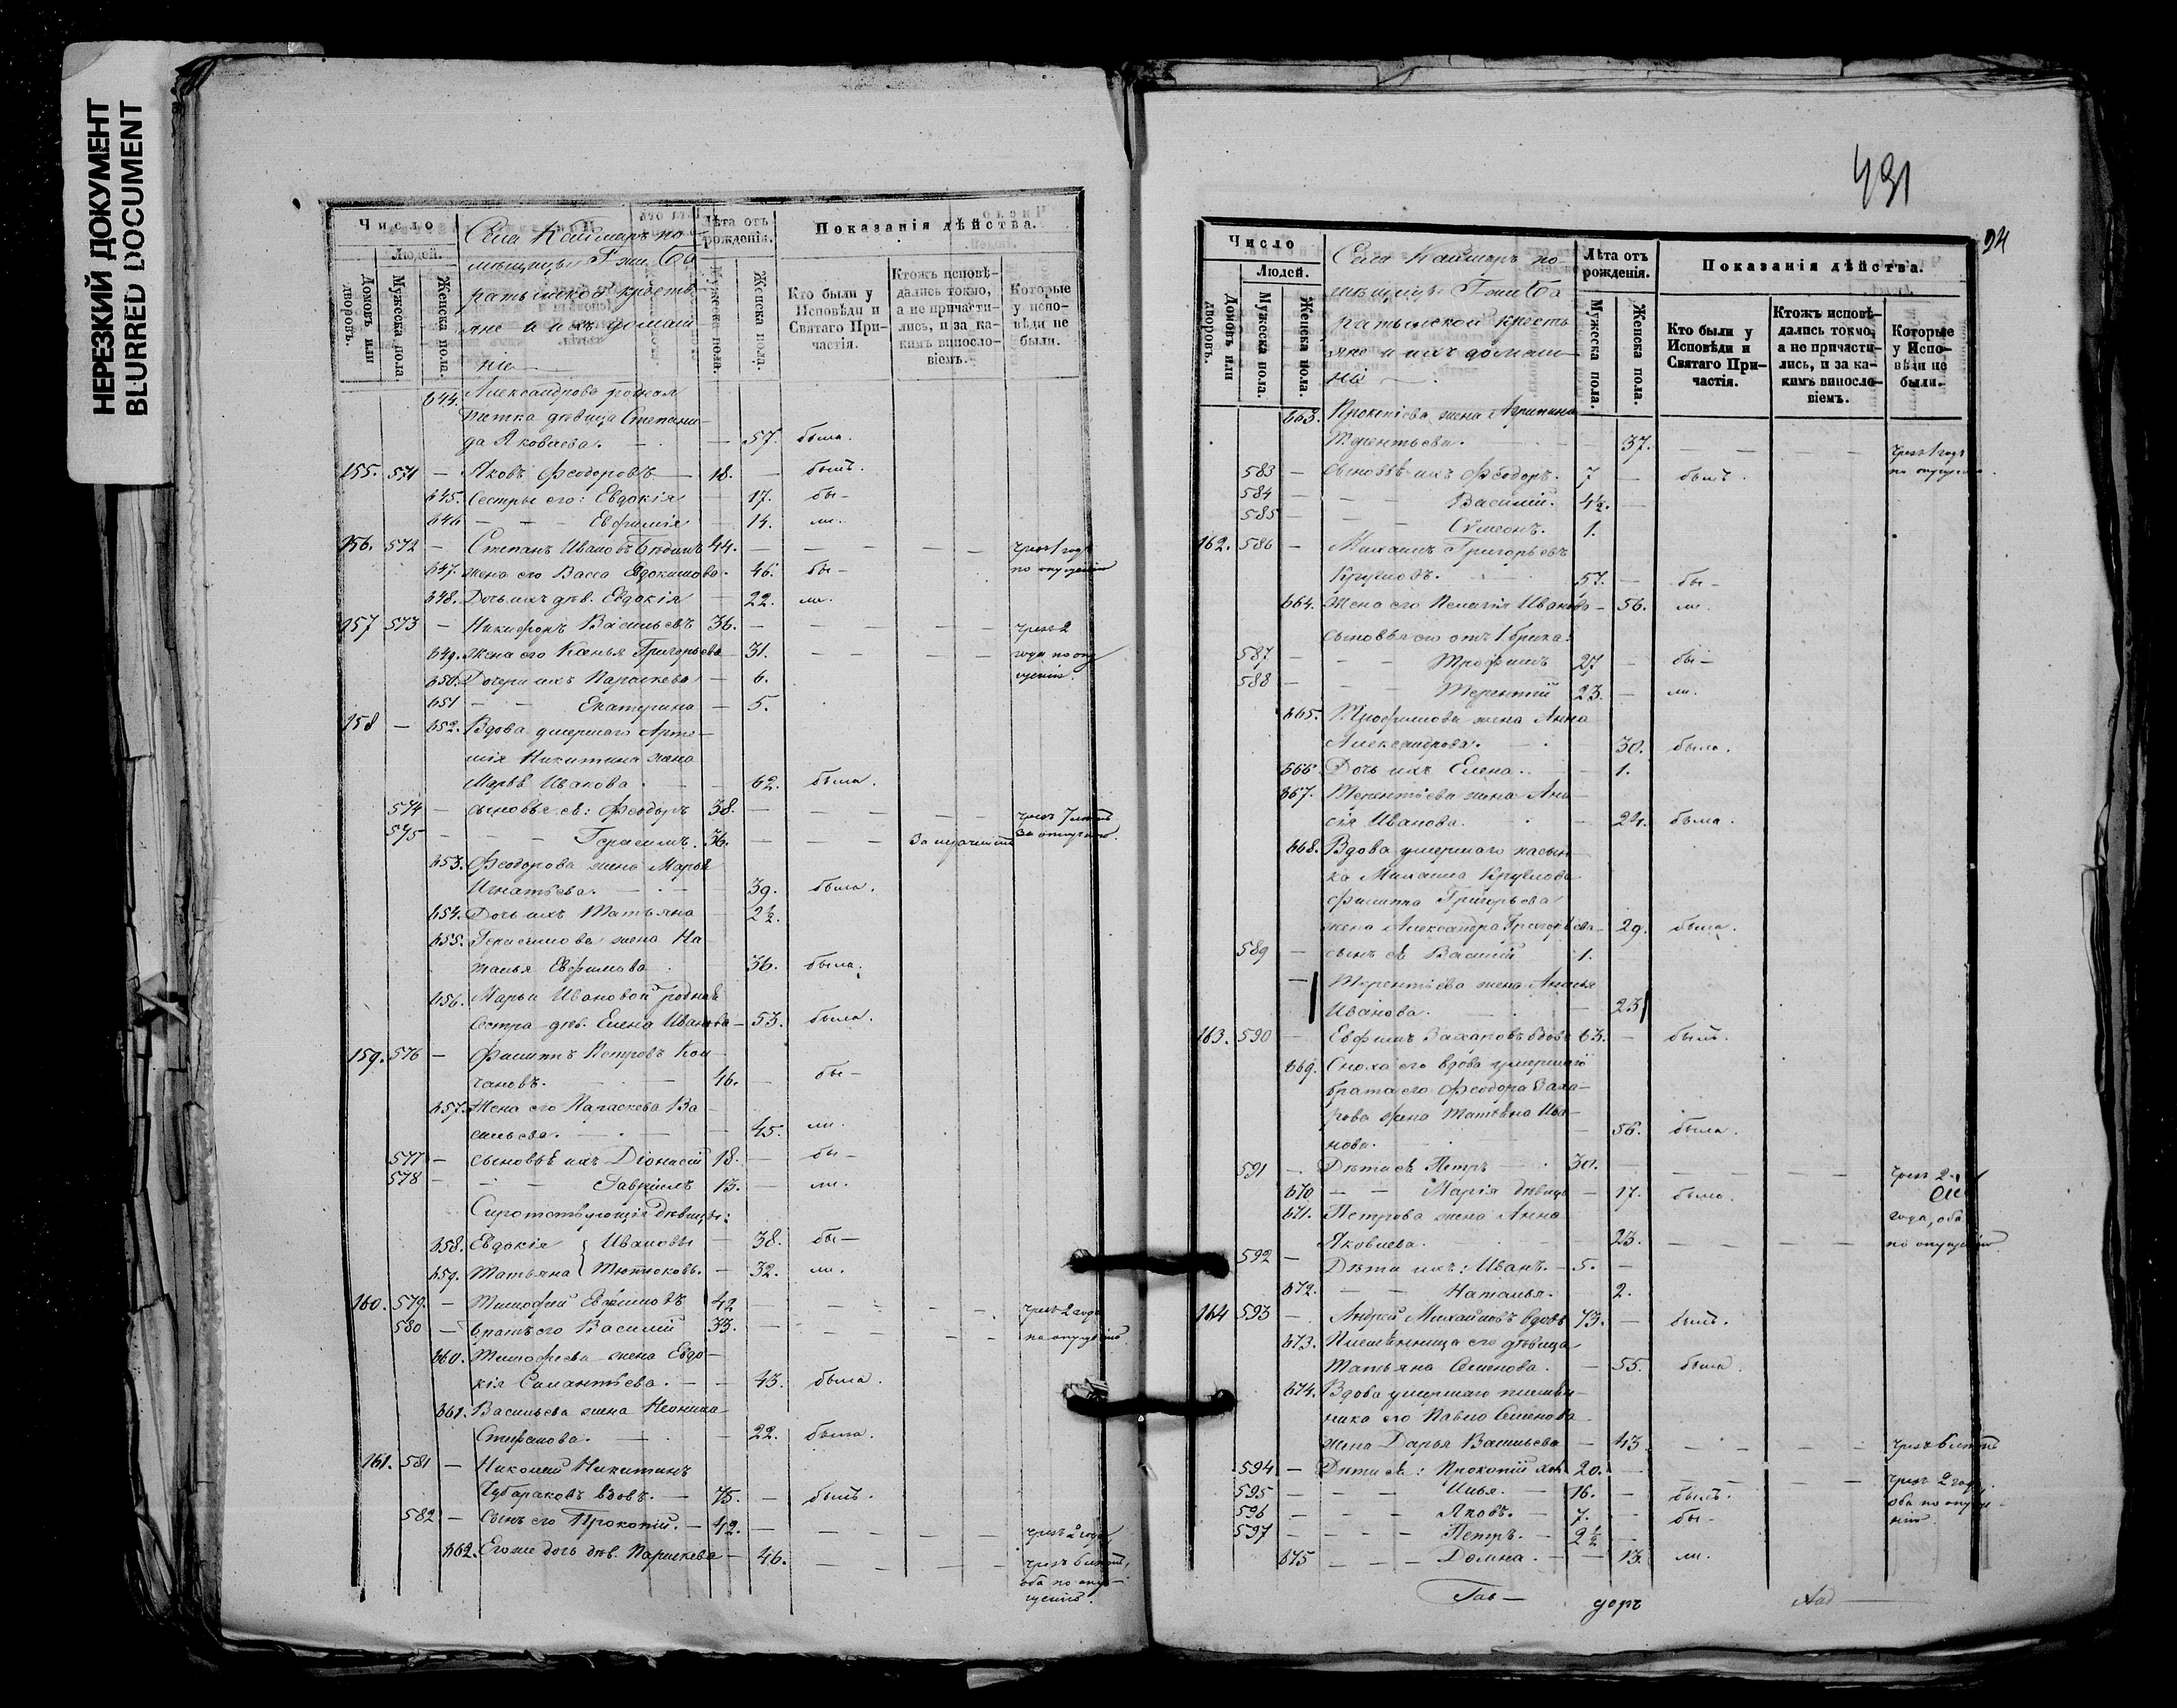 НЕРЕЗКИЙ ДОКУМЕНТ
BLURRED DOCUMENT
Число
Людей.
Домовъ или дворовъ.
Мужеска пола.
Женска пола.
Села Каймаръ по-
мѣщицы Гжи Бо-
ратынской кресть-
яне и ихъ домаш-
ніе
Лѣта отъ рожденія.
Мужеска пола.
Женска пола.
Показанія дѣйства.
Кто были у Исповѣди и Святаго При-частія.
Ктожъ исповѣ-дались токмо, а не причасти-лись, и за ка-кимъ виносло-віемъ.
Которые у испо-вѣди не были.
644. Александрова родная
тетка дѣвица Степани-
да Яковлева. — 57. была.
155. 571 — Яковъ Феодоровъ — 18. — былъ.
645. Сестры его: Евдокія — 17. бы-
646 — — Евфимія — 14. ли.
156. 572 — Степанъ Ивановъ 44. — — — — чрез 1 годъ
647. жена его Васса Евдокимова. 46. бы- по опущенію
648. Дочь ихъ дѣв. Евдокія — 22. ли.
157 573 — Никифоръ Васильевъ 36. — — — — чрез 2
649. жена его Ксенья Григорьева 31. — — — — года по опу
650. Дочери ихъ Параскева — 6. щенію.
651 — — Екатерина — 5.
158 — 652. Вдова умершаго Арте-
мія Никитина жена
Марья Иванова — 62. была.
574 — сыновья ея: Феодоръ 38. — — — — чрезъ 7 лѣтъ
575 — — Герасимъ. 36. — — — за опущ.
653. Феодорова жена Марья
Игнатьева. — 39. была.
654. Дочь ихъ Татьяна — 2½
655. Герасимова жена На-
талья Евфимова 36. была.
656. Марьи Ивановой родная
сестра дѣв. Елена Иванова — 53. была.
159. 576 — Филиппъ Петровъ Кол-
чановъ. — 46. — бы-
657. Жена его Параскева Ва-
сильева. — 45. ли.
577 — сыновья ихъ Діонисій 18. — бы-
578 — — Гавріилъ 13. — ли.
Сиротствующія дѣвицы:
658. Евдокія { Ивановы — 38. бы-
659. Татьяна — 32. ли.
160. 579. — Тимофей Евфимовъ 42 — — — — чрез 2 года
580 — братъ его Василій 33. — — — — по опущенію
660. Тимофеева жена Евдо-
кія — 43. была.
661. Васильева жена
Стефанова. — 22. была.
161. 581 — Николай Никитинъ
вдовъ. — 75. — былъ.
582 — Сынъ его Прокопій. — 42. — — — — чрезъ 2 года,
662. Его же дочь дѣв. Параскева — 46. — — — чрезъ 6 лѣтъ,
оба по опу-
щенію.
491
94
Число
Людей.
Домовъ или дворовъ.
Мужеска пола.
Женска пола.
Села Каймаръ по-
мѣщицы Гжи Бо
ратынской кресть
яне и ихъ домаш-
ніе
Лѣта отъ рожденія.
Мужеска пола.
Женска пола.
Показанія дѣйства.
Кто были у Исповѣди и Святаго При-частія.
Ктожъ исповѣ-дались токмо, а не причасти-лись, и за ка-кимъ виносло-віемъ.
Которые у Испо-вѣди не были.
663. Прокопіева жена Агрипина
— 37. — — — чрез 1 годъ
583 — сыновья ихъ Феодоръ. 7 — былъ. по опущенію.
584 — — Василій. 4½. —
585 — — Сѵмеонъ. 1.
162. 586 — Михаилъ Григорьевъ
Кругловъ. 57. — бы-
664. Жена его Пелагія Иванова — 56. ли.
сыновья его отъ 1. брака:
587 — — Трофимъ 27 — бы-
588 — — Терентій 23. — ли.
665. Трофимова жена Анна
Александрова. — 30. была.
666. Дочь ихъ Елена. — 1.
667. Терентьева жена Ана
сія Иванова. — 24. была.
668. Вдова умершаго пасын-
ка Михаила Круглова
Филиппа Григорьева
жена Александра Григорьева — 29. была.
589 — сынъ ея Василій 1.
— Терентьева жена
Иванова. — 23
163. 590 — Евфимъ Захаровъ вдовъ 63. — былъ.
669. Сноха его вдова умершаго
брата его Феодора Заха-
рова жена Татьяна Ива-
нова. — 56. была.
591 — Дѣти ея Петръ — 30. — — — — чрез 2
670 — — Марія дѣвица — 17. была.
671. Петрова жена Анна года, оба
Яковлева. — 23. — — — — по опущенію.
592 — Дѣти ихъ: Иванъ. — 5. —
672. — — Наталья. — 2.
164 593 — Андрей Михайловъ вдовъ 73. — былъ.
673. Племянница его дѣвица
Татьяна Семенова. — 55. была.
674. Вдова умершаго племян-
ника его Павла Семенова
жена Дарья Васильева — 43 — — — — чрезъ 6 лѣтъ
594 — Дѣти ея: Прокопій хол. 20. — — — — чрез 2 года.
595 — — — Илья. — 16. — былъ. оба по опуще-
596 — — — Яковъ. — 7. — бы- нію.
597 — — — Петръ. — 2½ —
675 — — — Домна. — 13. ли.